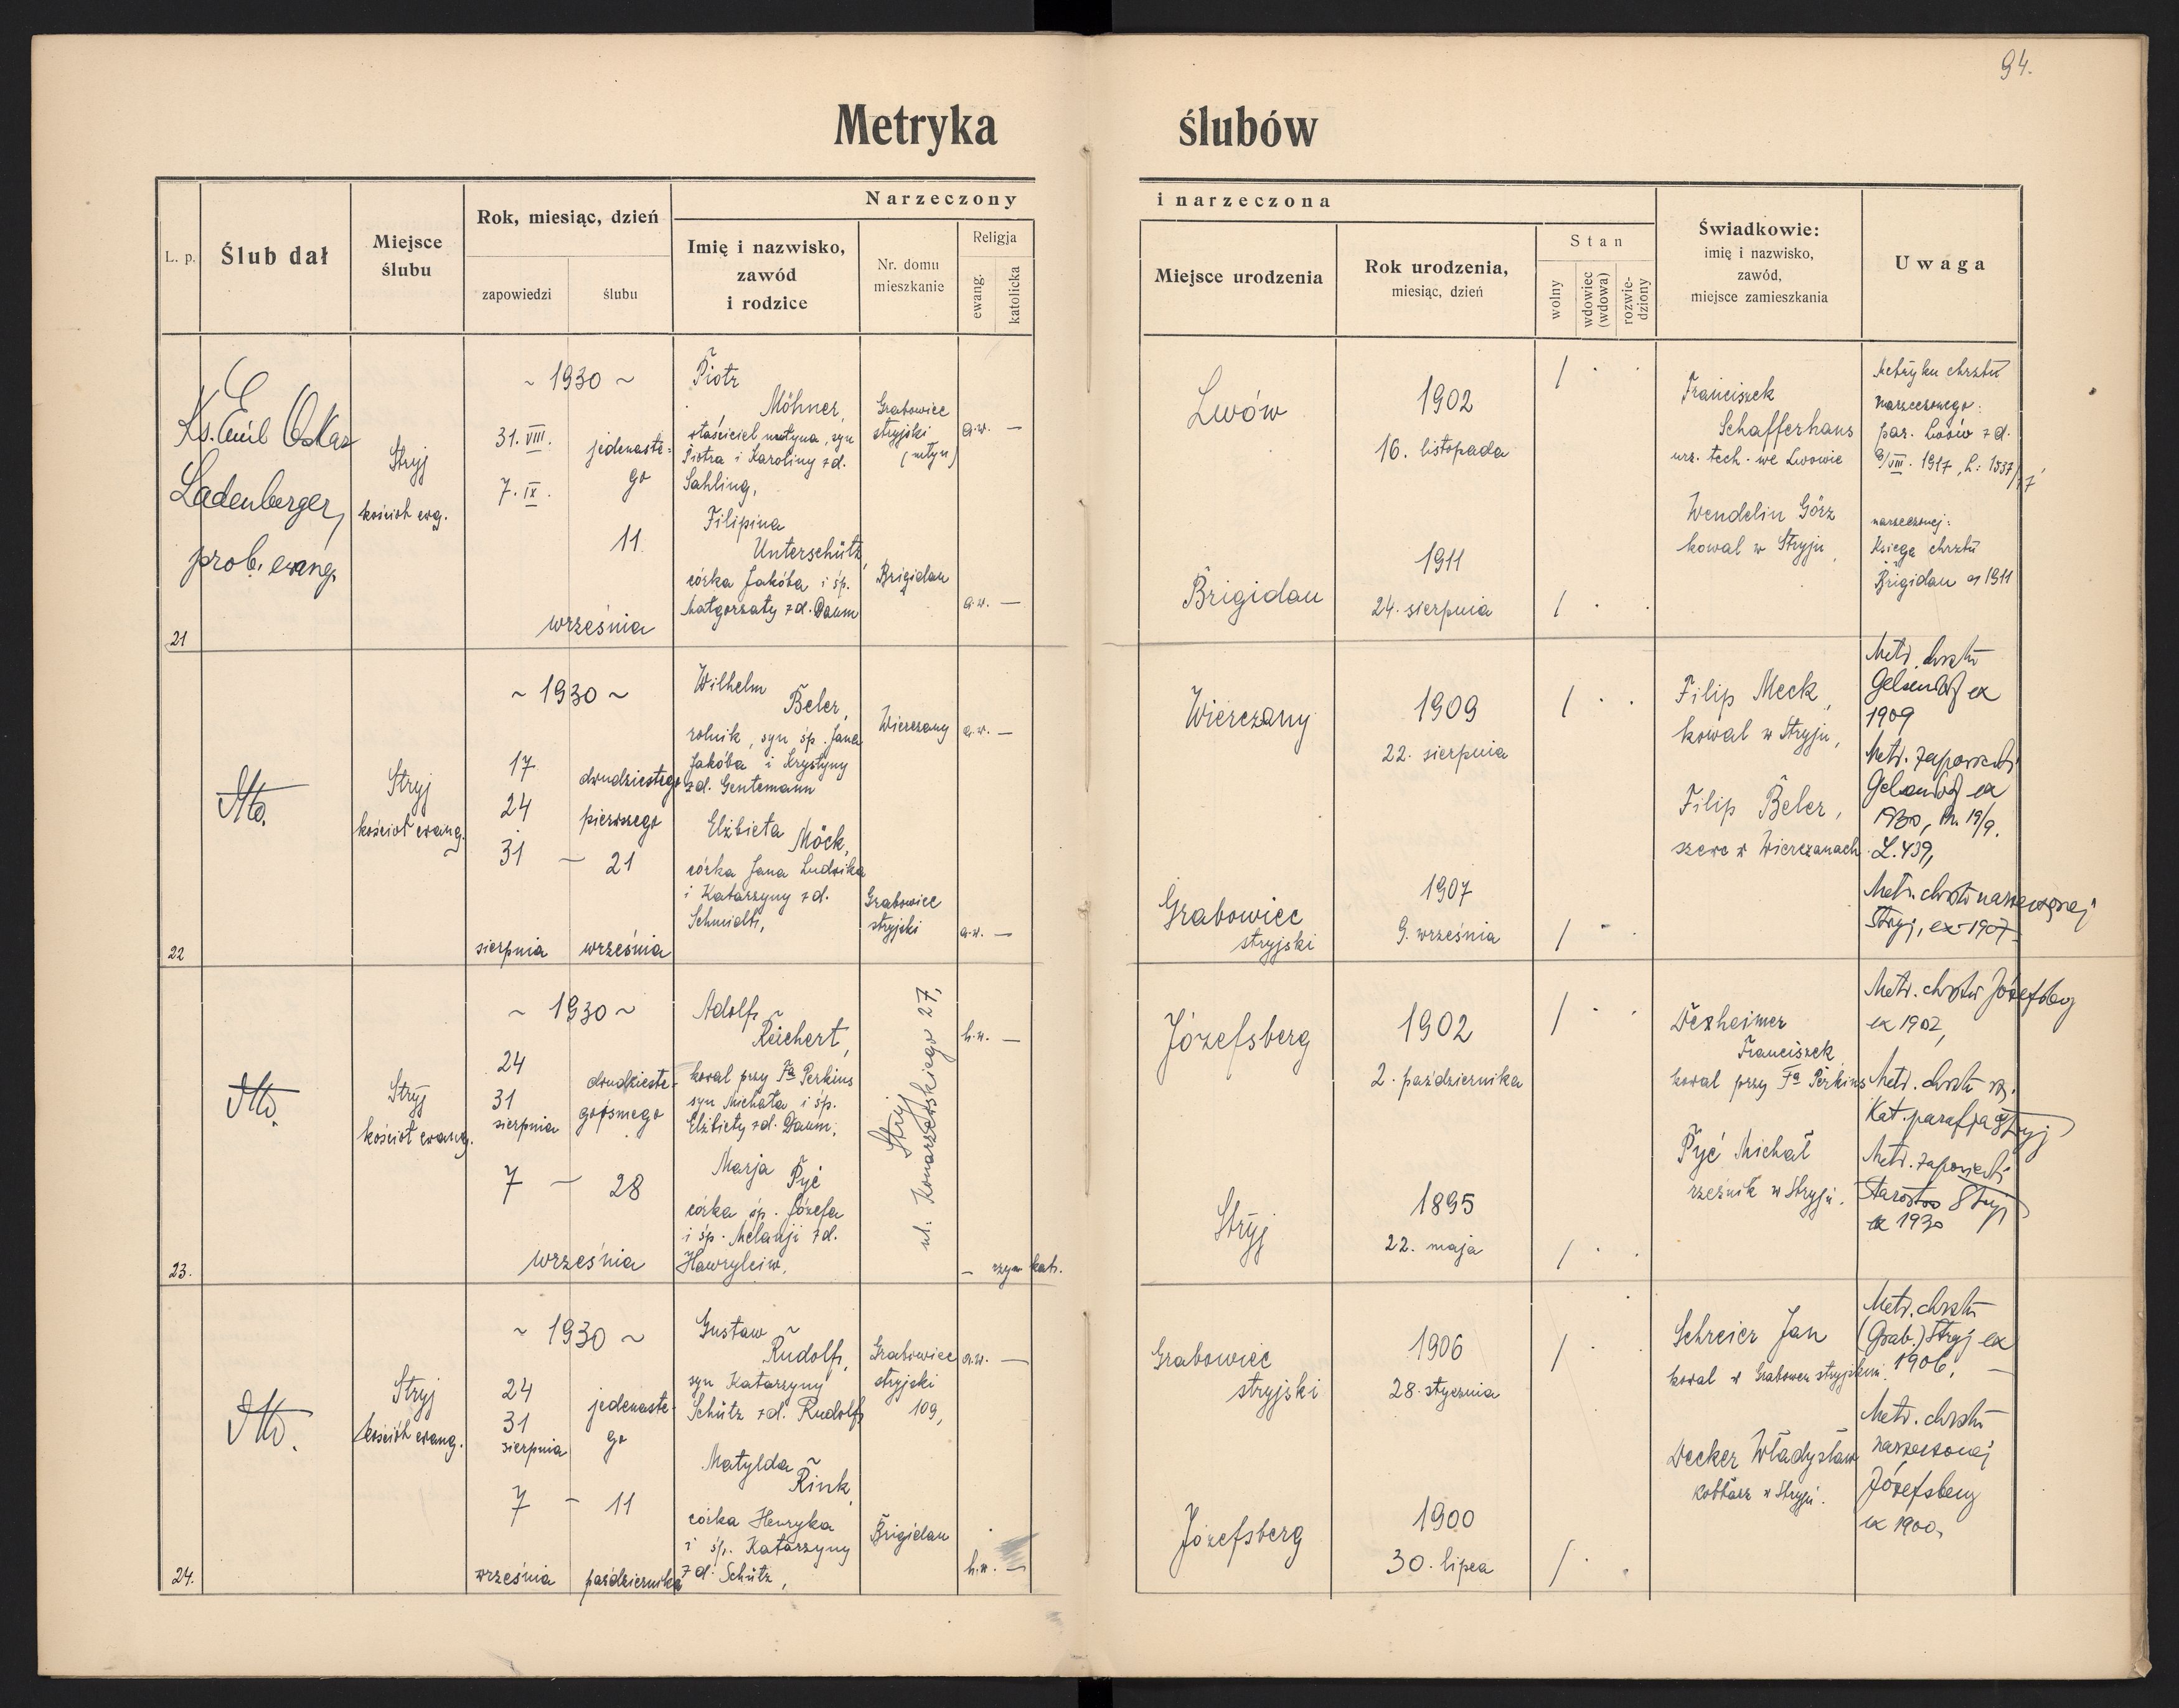 94.
Metryka ślubów
L. p.
Ślub dał
Miejsce
ślubu
Rok, miesiąc, dzień
zapowiedzi
ślubu
Narzeczony
Imię i nazwisko,
zawód
i rodzice
Nr. domu
mieszkanie
Religja
ewang.
katolicka
i narzeczona
Miejsce urodzenia
Rok urodzenia,
miesiąc, dzień
Stan
wolny
wdowiec
(wdowa)
rozwie-
dziony
Świadkowie:
imię i nazwisko,
zawód,
miejsce zamieszkania
Uwaga
21
Ks. Emil Oskar
Ladenberger,
prob. ewang.
Stryj
kościół ewg.
~ 1930 ~
31. VIII.
7. IX.
jedenaste-
go
11
września
Piotr
Möhner,
właściciel młyna, syn
Piotra i Karoliny zd.
Sahling,
Filipina
Unterschütz,
córka Jakóba i śp.
Małgorzaty zd. Daum
Grabowiec
stryjski
(młyn)
Brigidau
a.w. —
a.w. —
Lwów
Brigidau
1902
16. listopada
1911
24. sierpnia
/ . .
/ . .
Franciszek
Schafferhans
urz. tech. we Lwowie
Wendelin Görz
kowal w Stryju,
Metryka chrztu
narzeczonego:
par. Lwów z d.
8/VIII. 1917, L: 1537/17
narzeczonej:
Księga chrztu
Brigidau ex 1911
22
Dto.
Stryj
kościół ewang.
~ 1930 ~
17
24
31
sierpnia
dwudziestego
pierwszego
— 21
września
Wilhelm
Beler,
rolnik, syn śp. Jana
Jakóba i Krystyny
zd. Gentemann
Elżbieta Möck,
córka Jana Ludwika
i Katarzyny zd.
Schmidt,
Wierczany
Grabowiec
stryjski
a.w. —
a.w. —
Wierczany
Grabowiec
stryjski
1909
22. sierpnia
1907
9. września
/ . .
/ - .
Filip Meck,
kowal w Stryju,
Filip Beler,
szewc w Wierczanach.
Metr. chrztu
Gelsendorf ex
1909
Metr. zapowiedzi
Gelsendorf ex
1930, 19/9.
L. 439,
Metr. chrztu narzeczonej
Stryj, ex 1907
23.
Dto.
Stryj
kościół ewang.
~ 1930 ~
24
31
sierpnia
7 — 28
dwudzieste-
goósmego
września
Adolf
Reichert,
kowal przy Fa Perkins
syn Michała i śp.
Elżbiety zd. Daum,
Marja Pyć
córka śp. Józefa
i śp. Melanji zd.
Hawryleiw,
Stryj
ul: Konarzewskiego 27,
h.w. —
— rzym kat.
Józefsberg
Stryj
1902
2. października
1895
22. maja
/ . .
/ . .
Dexheimer
Franciszek
kowal przy Fa Perkins
Pyć Michał
rzeźnik w Stryju.
Metr. chrztu Józefsberg
ex 1902,
Metr. chrztu rz.
Kat. parafja Stryj
Metr. zapowiedzi
Starostwo Stryj
ex 1930
24.
Dto.
Stryj
kościół ewang.
~ 1930 ~
24
31
sierpnia
7 — 11
września
jedenaste-
go
października
Gustaw
Rudolf,
syn Katarzyny
Schütz zd. Rudolf,
Matylda
Rink,
córka Henryka
i śp. Katarzyny
zd. Schütz,
Grabowiec
stryjski
109,
Brigidau
a.w. —
h.w. —
Grabowiec
stryjski
Józefsberg
1906
28. stycznia
1900
30. lipca
/ .
/ . .
Schreier Jan
kowal w Grabowcu stryjskim.
Decker Władysław
kotlarz w Stryju.
Metr. chrztu
(Grab.) Stryj ex
1906, —
Metr. chrztu
narzeczonej
Józefsberg
ex 1900,